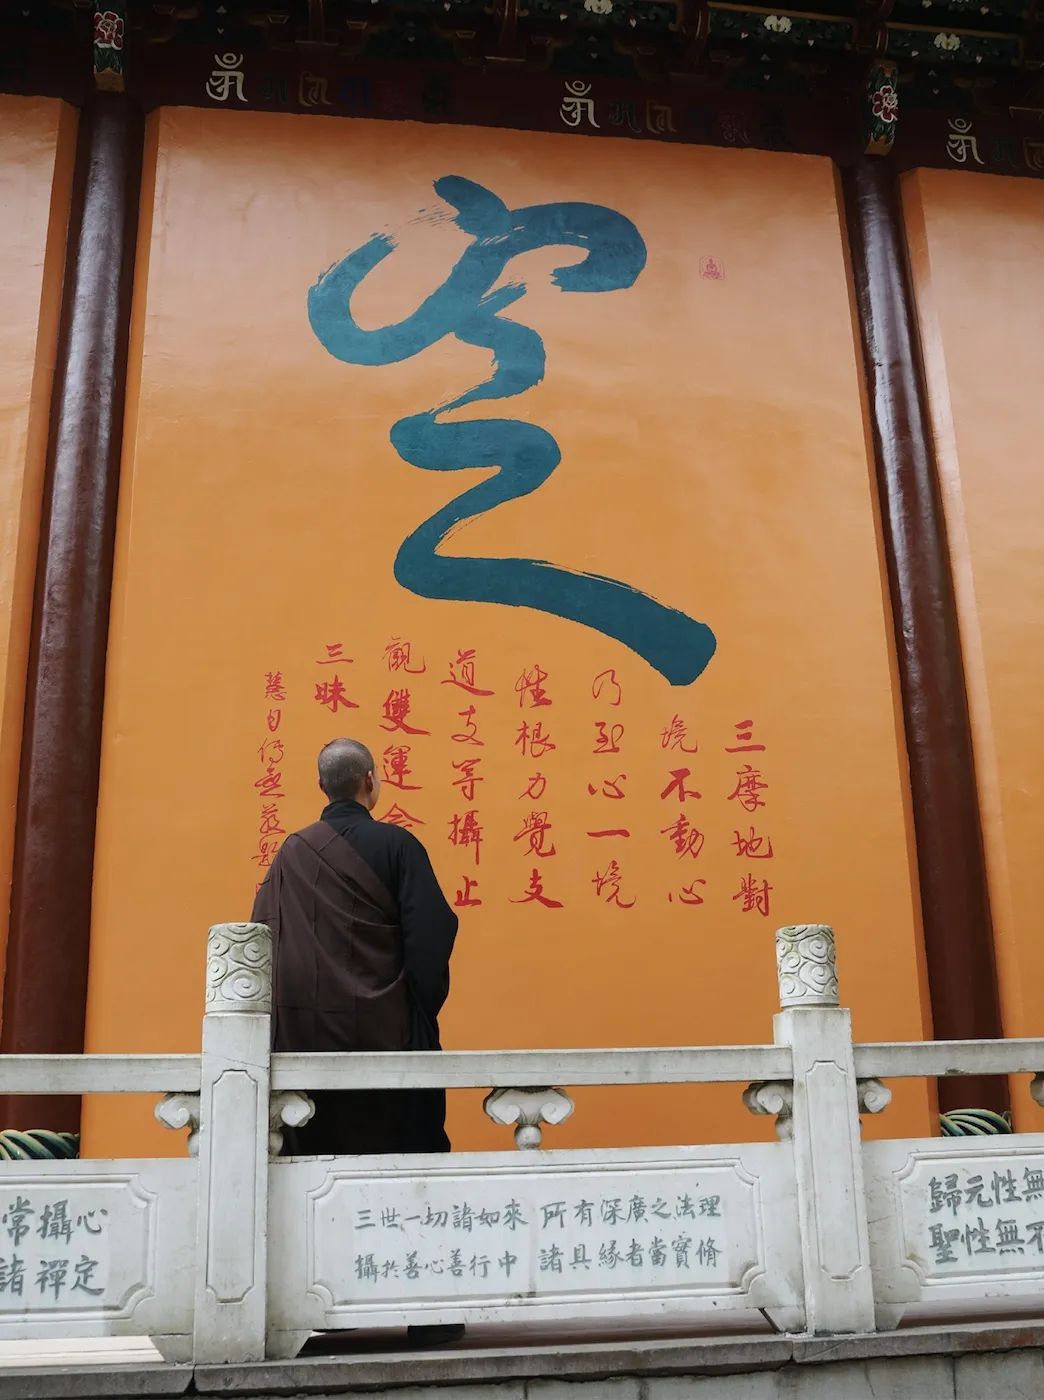 定
三摩地對
境不動心
乃至心一境
性根力覺支
道支等攝止
觀雙運
三昧
慧日
常攝心
諸禪定
三世一切諸如來 所有深廣之法理
攝於善心善行中 諸具緣者當實脩
歸元性無
聖性無不